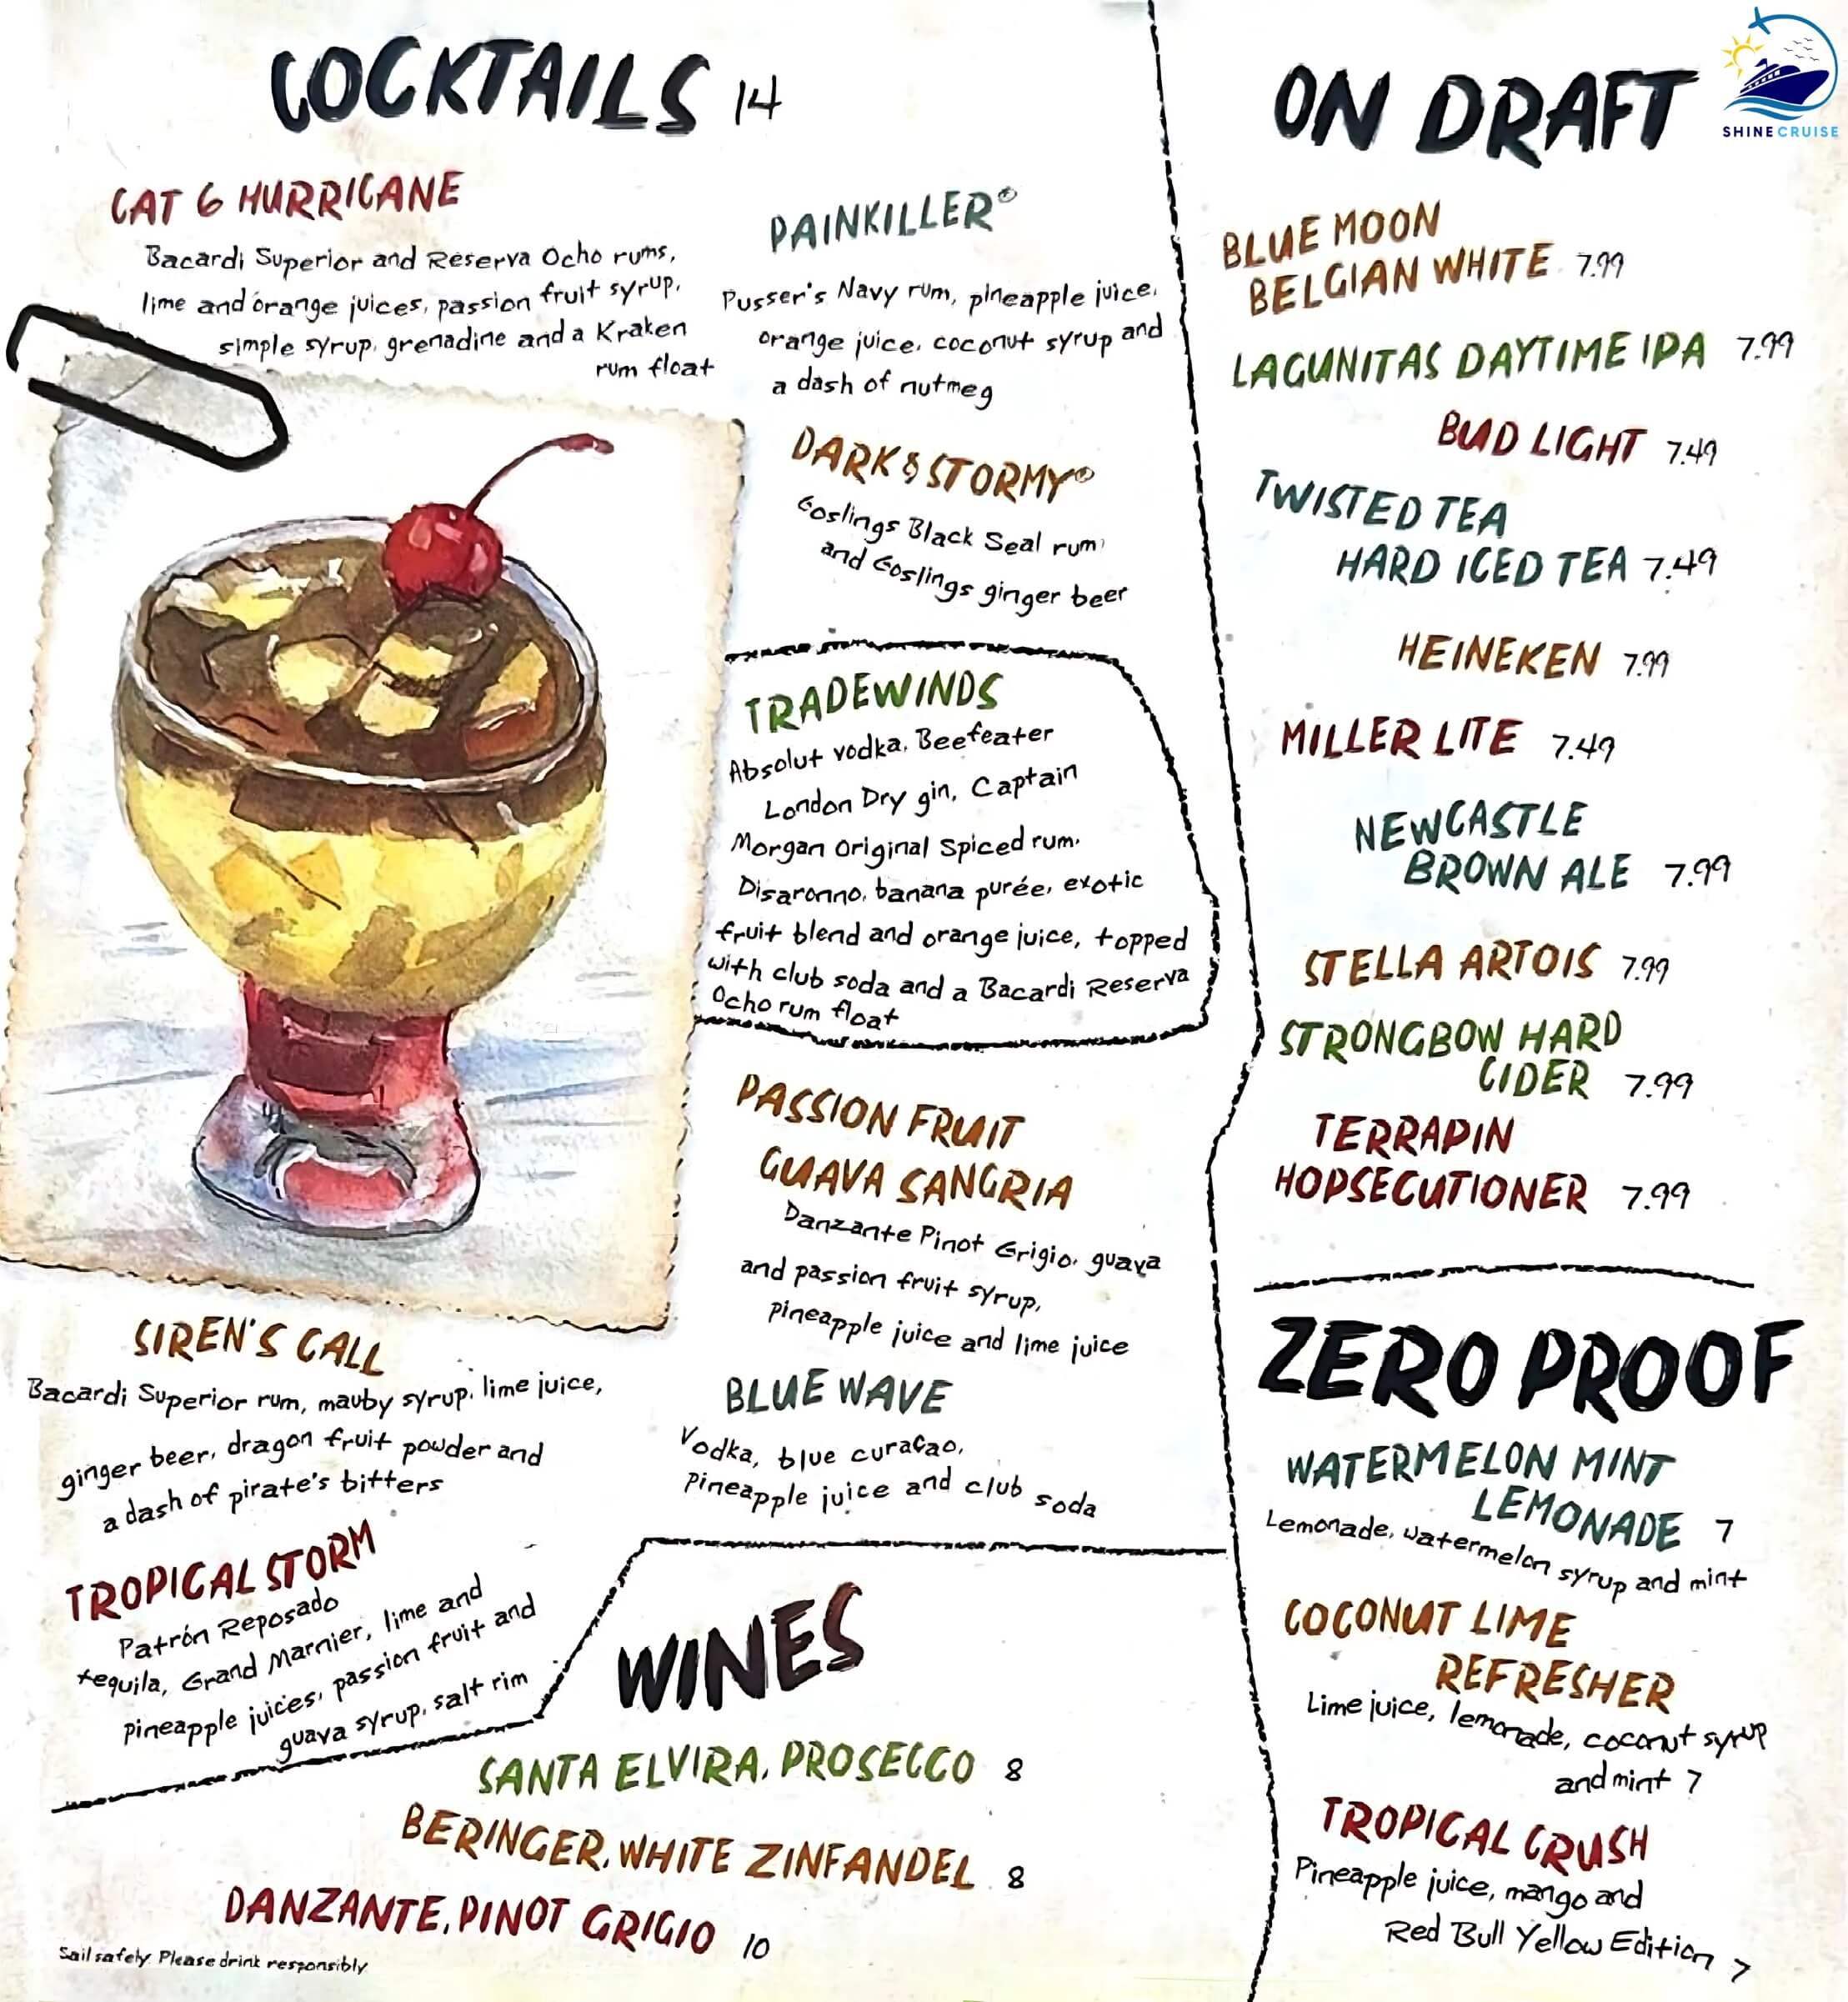 COCKTAILS 14
CAT 6 HURRICANE
Bacardi Superior and Reserva Ocho rums,
lime and orange juices, passion fruit syrup,
simple syrup, grenadine and a Kraken
rum float
PAINKILLER®
Pusser's Navy rum, pineapple juice,
orange juice, coconut syrup and
a dash of nutmeg
DARK & STORMY®
Goslings Black Seal rum
and Goslings ginger beer
TRADEWINDS
Absolut vodka, Beefeater
London Dry gin, Captain
Morgan Original Spiced rum,
Disaronno, banana purée, exotic
fruit blend and orange juice, topped
with club soda and a Bacardi Reserva
Ocho rum float
PASSION FRUIT
GUAVA SANGRIA
Danzante Pinot Grigio, guava
and passion fruit syrup,
pineapple juice and lime juice
SIREN'S CALL
Bacardi Superior rum, mauby syrup, lime juice,
ginger beer, dragon fruit powder and
a dash of pirate's bitters
BLUE WAVE
Vodka, blue curaçao,
pineapple juice and club soda
TROPICAL STORM
Patrón Reposado
tequila, Grand Marnier, lime and
pineapple juices, passion fruit and
guava syrup, salt rim
WINES
SANTA ELVIRA, PROSECCO 8
BERINGER, WHITE ZINFANDEL 8
DANZANTE, PINOT GRIGIO 10
Sail safely. Please drink responsibly.
ON DRAFT
SHINECRUISE
BLUE MOON
BELGIAN WHITE 7.99
LAGUNITAS DAYTIME IPA 7.99
BUD LIGHT 7.49
TWISTED TEA
HARD ICED TEA 7.49
HEINEKEN 7.99
MILLER LITE 7.49
NEWCASTLE
BROWN ALE 7.99
STELLA ARTOIS 7.99
STRONGBOW HARD
CIDER 7.99
TERRAPIN
HOPSECUTIONER 7.99
ZERO PROOF
WATERMELON MINT
LEMONADE 7
Lemonade, watermelon syrup and mint
COCONUT LIME
REFRESHER
Lime juice, lemonade, coconut syrup
and mint 7
TROPICAL CRUSH
Pineapple juice, mango and
Red Bull Yellow Edition 7